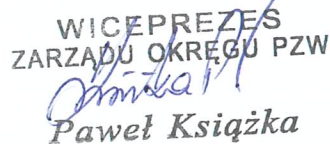 WICEPREZES
ZARZĄDU OKRĘGU PZW
Paweł Książka